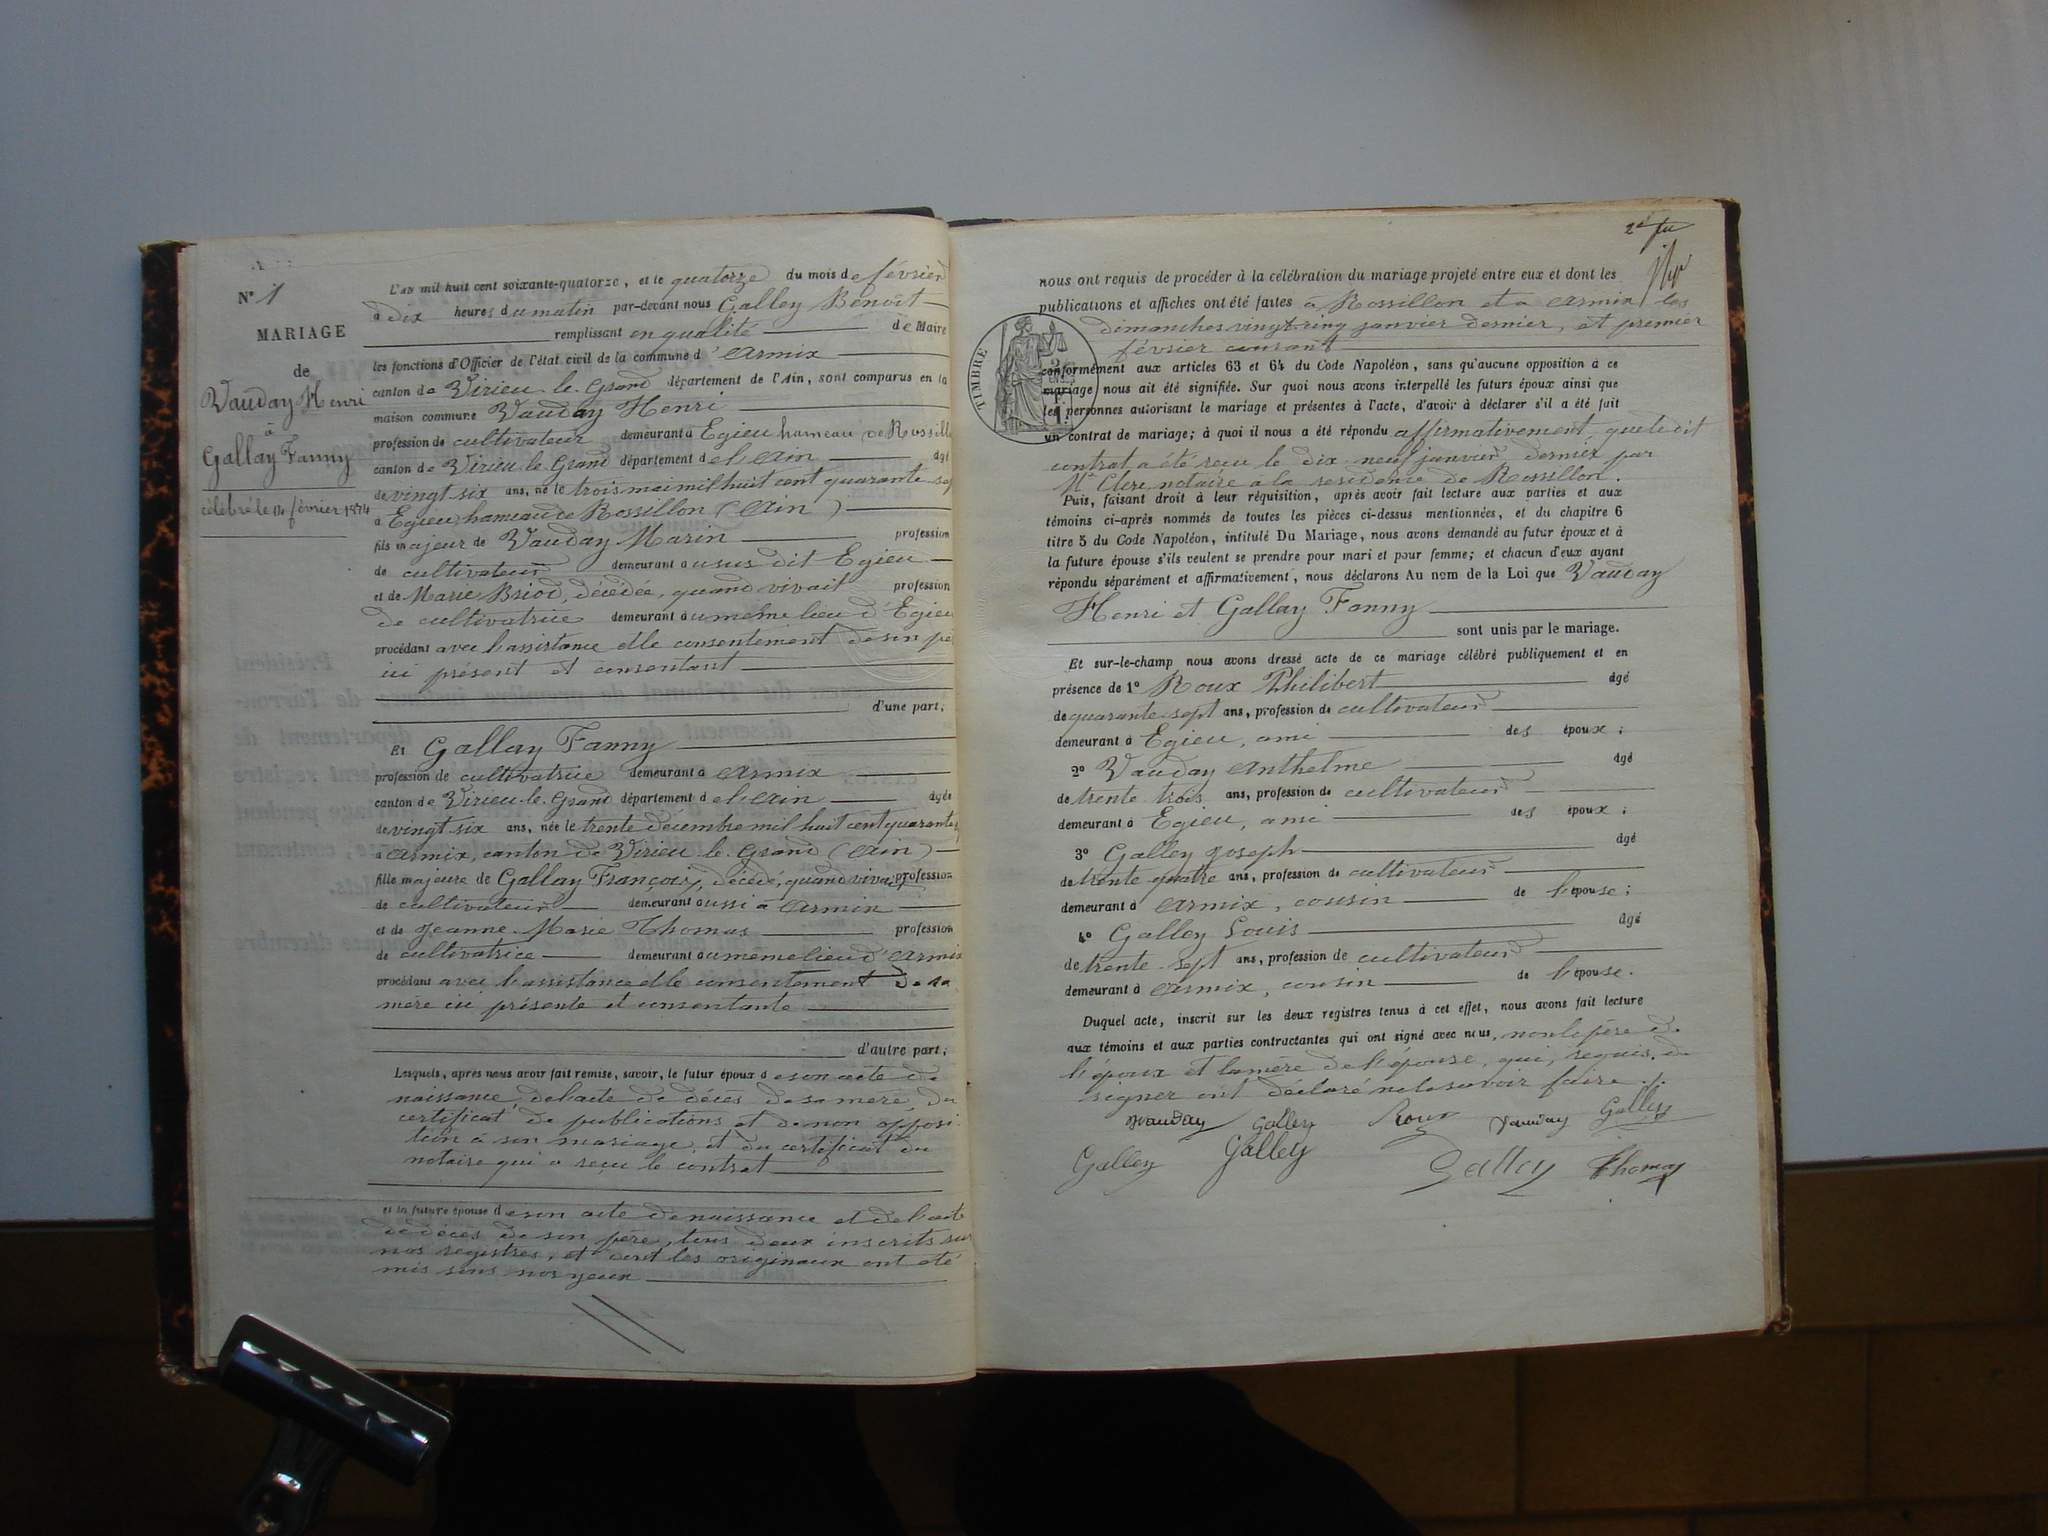 N° 1
MARIAGE
de
Vauday Henri
à
Gallay Fanny
célébré le 14 février 1874
L'an mil huit cent soixante-quatorze, et le quatorze du mois de février
à dix heures du matin par-devant nous Galley Benoit
remplissant en qualité de Maire
les fonctions d'Officier de l'état civil de la commune d'Armix
canton de Virieu-le-Grand département de l'Ain, sont comparus en la
maison commune Vauday Henri
profession de cultivateur demeurant à Egieu hameau de Rossill
canton de Virieu-le-Grand département de l'Ain âgé
de vingt six ans, né le trois mai mil huit cent quarante sep
à Egieu, hameau de Rossillon (Ain)
fils majeur de Vauday Marin profession
de cultivateur demeurant au susdit Egieu
et de Marie Briod, décédée, quand vivait profession
de cultivatrice demeurant au même lieu d'Egieu
procédant avec l'assistance et le consentement de son pè
ici présent et consentant
d'une part;
Et Gallay Fanny
profession de cultivatrice demeurant à Armix
canton de Virieu-le-Grand département de l'Ain âgée
de vingt six ans, née le trente décembre mil huit cent quarante
à Armix, canton de Virieu-le-Grand (Ain)
fille majeure de Gallay François, décédé, quand vivait profession
de cultivateur demeurant aussi à Armix
et de Jeanne-Marie Thomas profession
de cultivatrice demeurant au même lieu d'Armix
procédant avec l'assistance et le consentement de sa
mère ici présente et consentante
d'autre part;
Lesquels, après nous avoir fait remise, savoir, le futur époux de son acte de
naissance, de l'acte de décès de sa mère, du
certificat de publications et de non opposi-
tion à son mariage, et du certificat du
notaire qui a reçu le contrat
et la future épouse de son acte de naissance et de l'acte
de décès de son père, tous deux inscrits sur
nos registres, et dont les originaux ont été
mis sous nos yeux
nous ont requis de procéder à la célébration du mariage projeté entre eux et dont les
publications et affiches ont été faites à Rossillon et à Armix les
dimanches vingt-cinq janvier dernier, et premier
février courant
TIMBRE
conformément aux articles 63 et 64 du Code Napoléon, sans qu'aucune opposition à ce
mariage nous ait été signifiée. Sur quoi nous avons interpellé les futurs époux ainsi que
les personnes autorisant le mariage et présentes à l'acte, d'avoir à déclarer s'il a été fait
un contrat de mariage; à quoi il nous a été répondu affirmativement, que le dit
contrat a été reçu le dix neuf janvier dernier par
Me Clerc notaire à la résidence de Rossillon.
Puis, faisant droit à leur réquisition, après avoir fait lecture aux parties et aux
témoins ci-après nommés de toutes les pièces ci-dessus mentionnées, et du chapitre 6
titre 5 du Code Napoléon, intitulé Du Mariage, nous avons demandé au futur époux et à
la future épouse s'ils veulent se prendre pour mari et pour femme; et chacun d'eux ayant
répondu séparément et affirmativement, nous déclarons Au nom de la Loi que Vauday
Henri et Gallay Fanny
sont unis par le mariage.
Et sur-le-champ nous avons dressé acte de ce mariage célébré publiquement et en
présence de 1° Roux Philibert âgé
de quarante-sept ans, profession de cultivateur
demeurant à Egieu, ami des époux;
2° Vauday Anthelme âgé
de trente trois ans, profession de cultivateur
demeurant à Egieu, ami des époux;
3° Galley Joseph âgé
de trente quatre ans, profession de cultivateur
demeurant à Armix, cousin de l'épouse;
4° Galley Louis âgé
de trente-sept ans, profession de cultivateur
demeurant à Armix, cousin de l'épouse.
Duquel acte, inscrit sur les deux registres tenus à cet effet, nous avons fait lecture
aux témoins et aux parties contractantes qui ont signé avec nous, non le père de
l'époux et la mère de l'épouse, qui, requis de
signer ont déclaré ne le savoir faire.
Vauday Galley Roux Vauday Galley
Galley Galley Galley Thomas